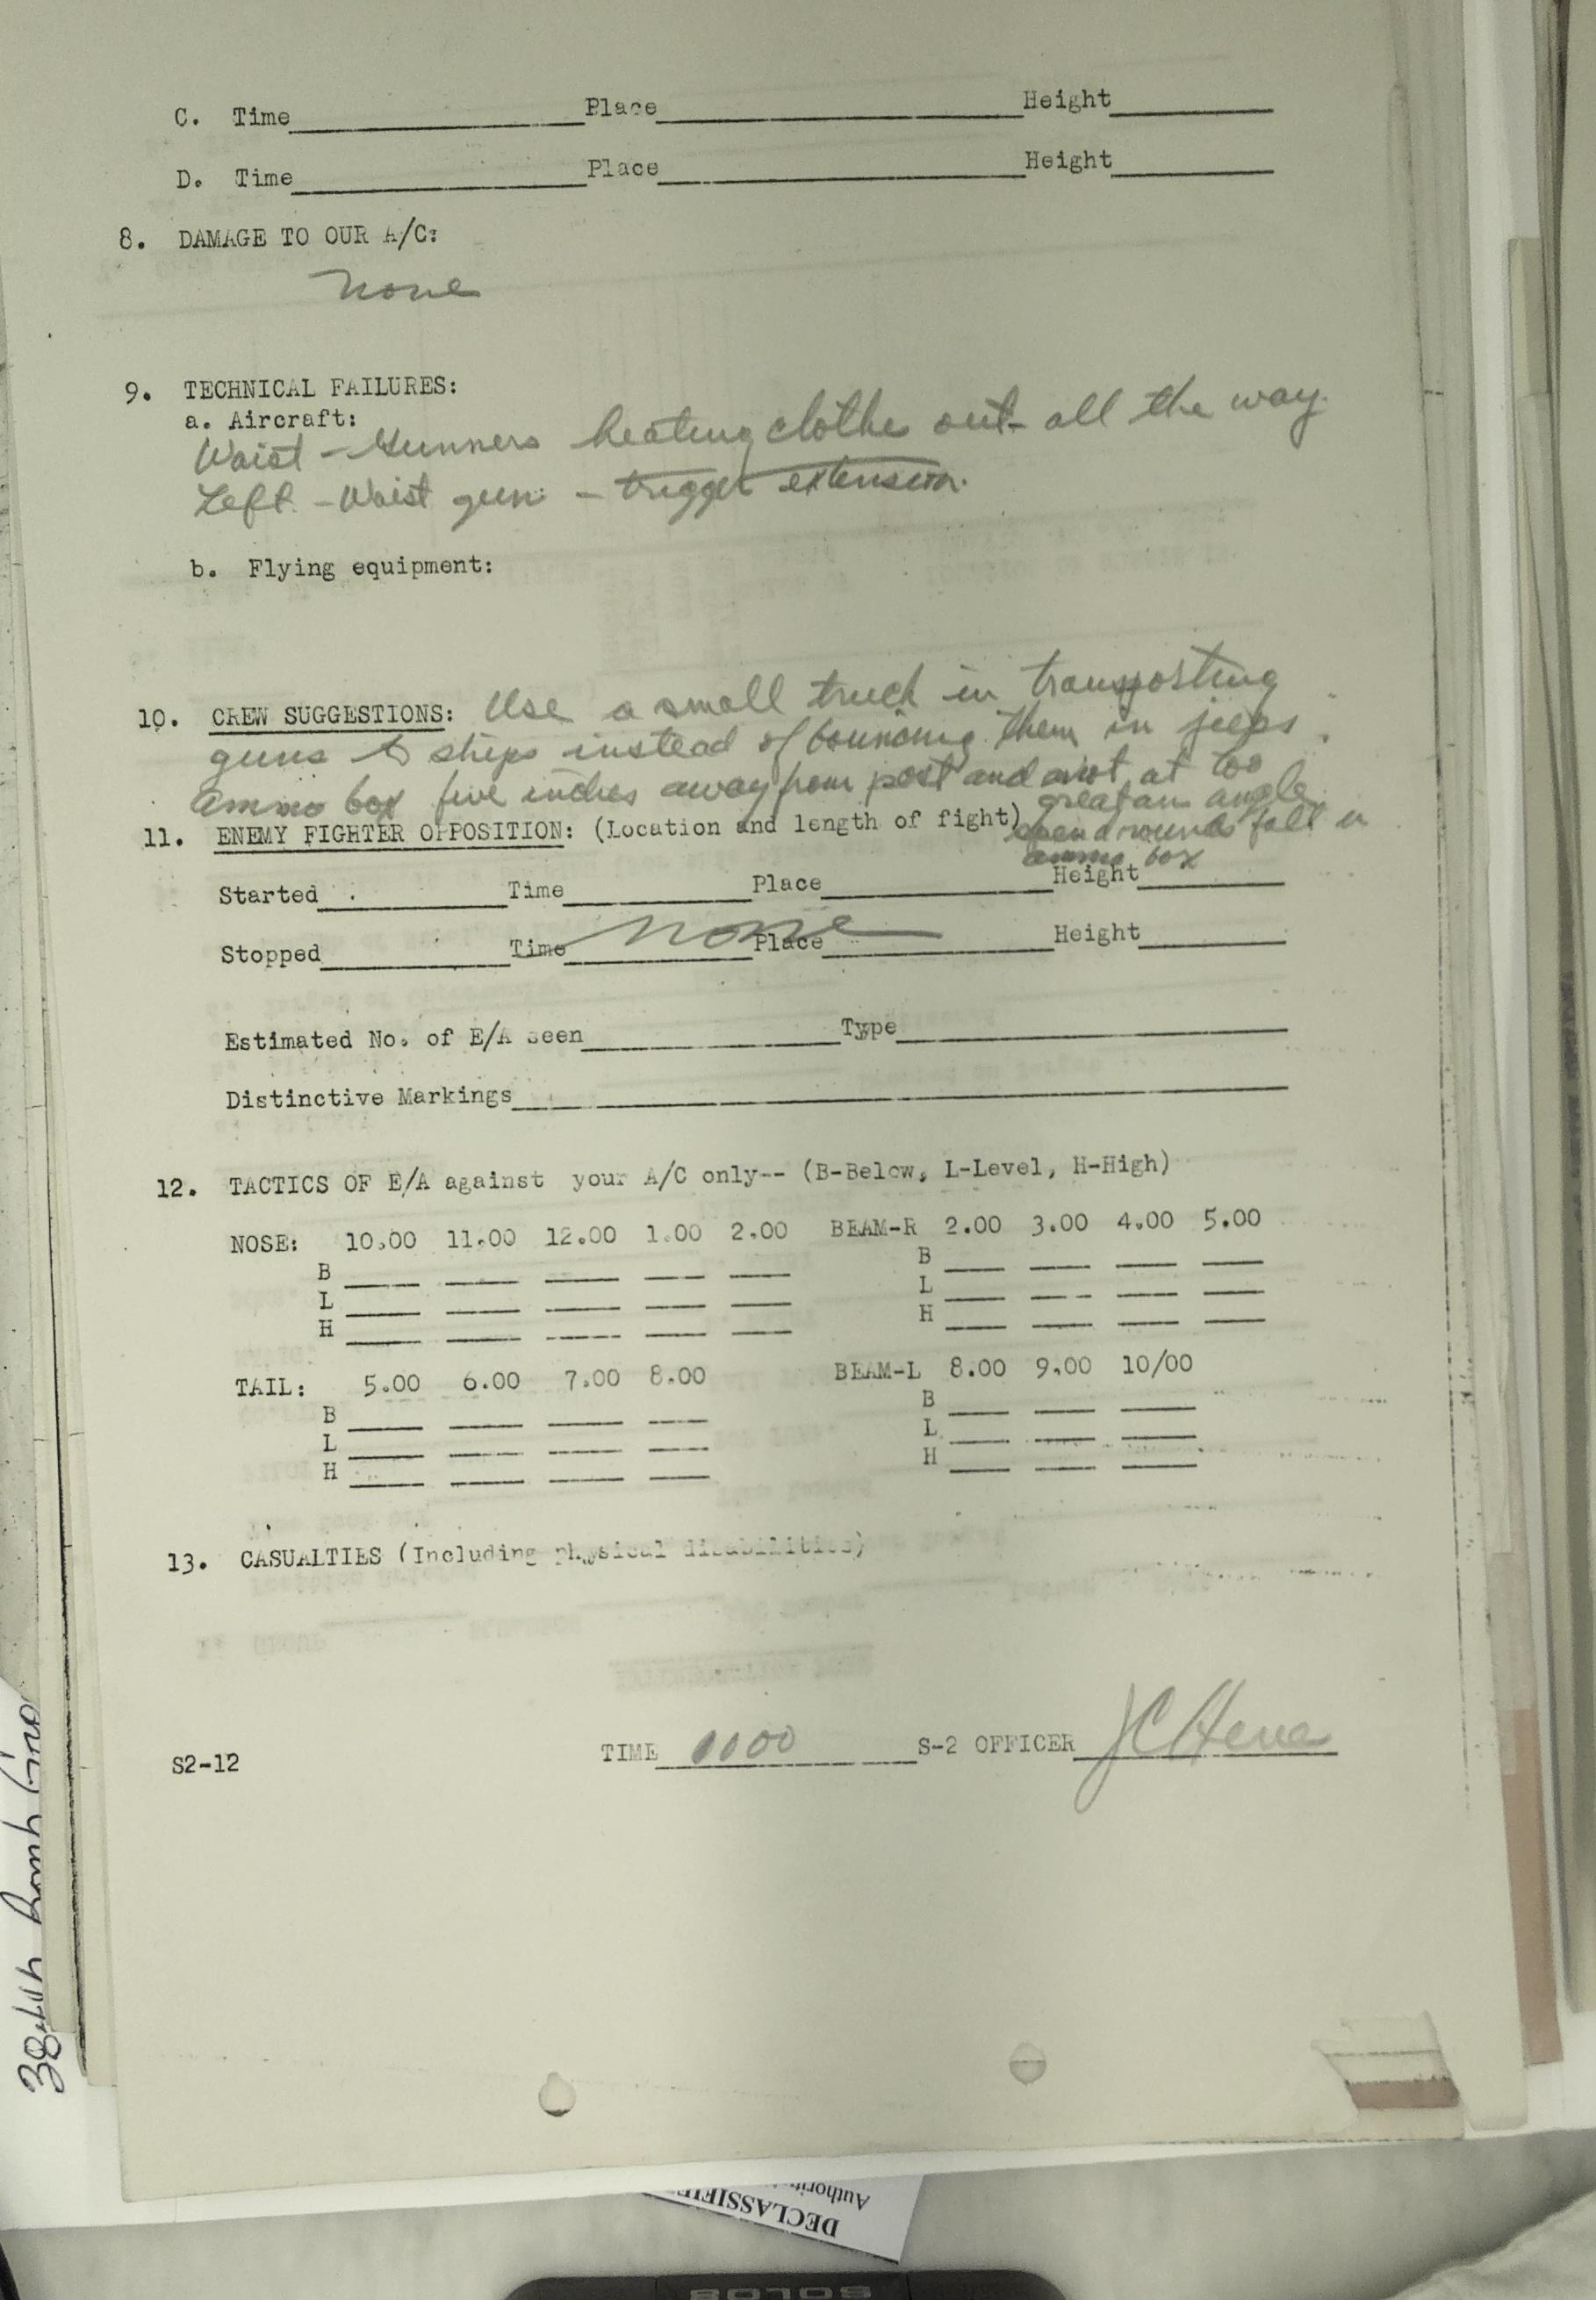 C. Time Place Height
D. Time Place Height
8. DAMAGE TO OUR A/C:
none
9. TECHNICAL FAILURES:
a. Aircraft:
Waist - Gunners heating clothe out all the way.
Left - Waist gun - trigger extension.
b. Flying equipment:
10. CREW SUGGESTIONS: Use a small truck in transporting
guns to ships instead of bouncing them in jeeps.
Ammo box five inches away from post and not at too
great an angle
11. ENEMY FIGHTER OPPOSITION: (Location and length of fight)
rounds fall in
ammo box
Started Time Place Height
none
Stopped Time Place Height
Estimated No. of E/A seen Type
Distinctive Markings
12. TACTICS OF E/A against your A/C only-- (B-Below, L-Level, H-High)
NOSE: 10.00 11.00 12.00 1.00 2.00 BEAM-R 2.00 3.00 4.00 5.00
B B
L L
H H
TAIL: 5.00 6.00 7.00 8.00 BEAM-L 8.00 9.00 10/00
B B
L L
H H
13. CASUALTIES (Including physical disabilities)
S2-12 TIME 0100 S-2 OFFICER
38th Bomb Grp
DECLASSIFIE
Authorit